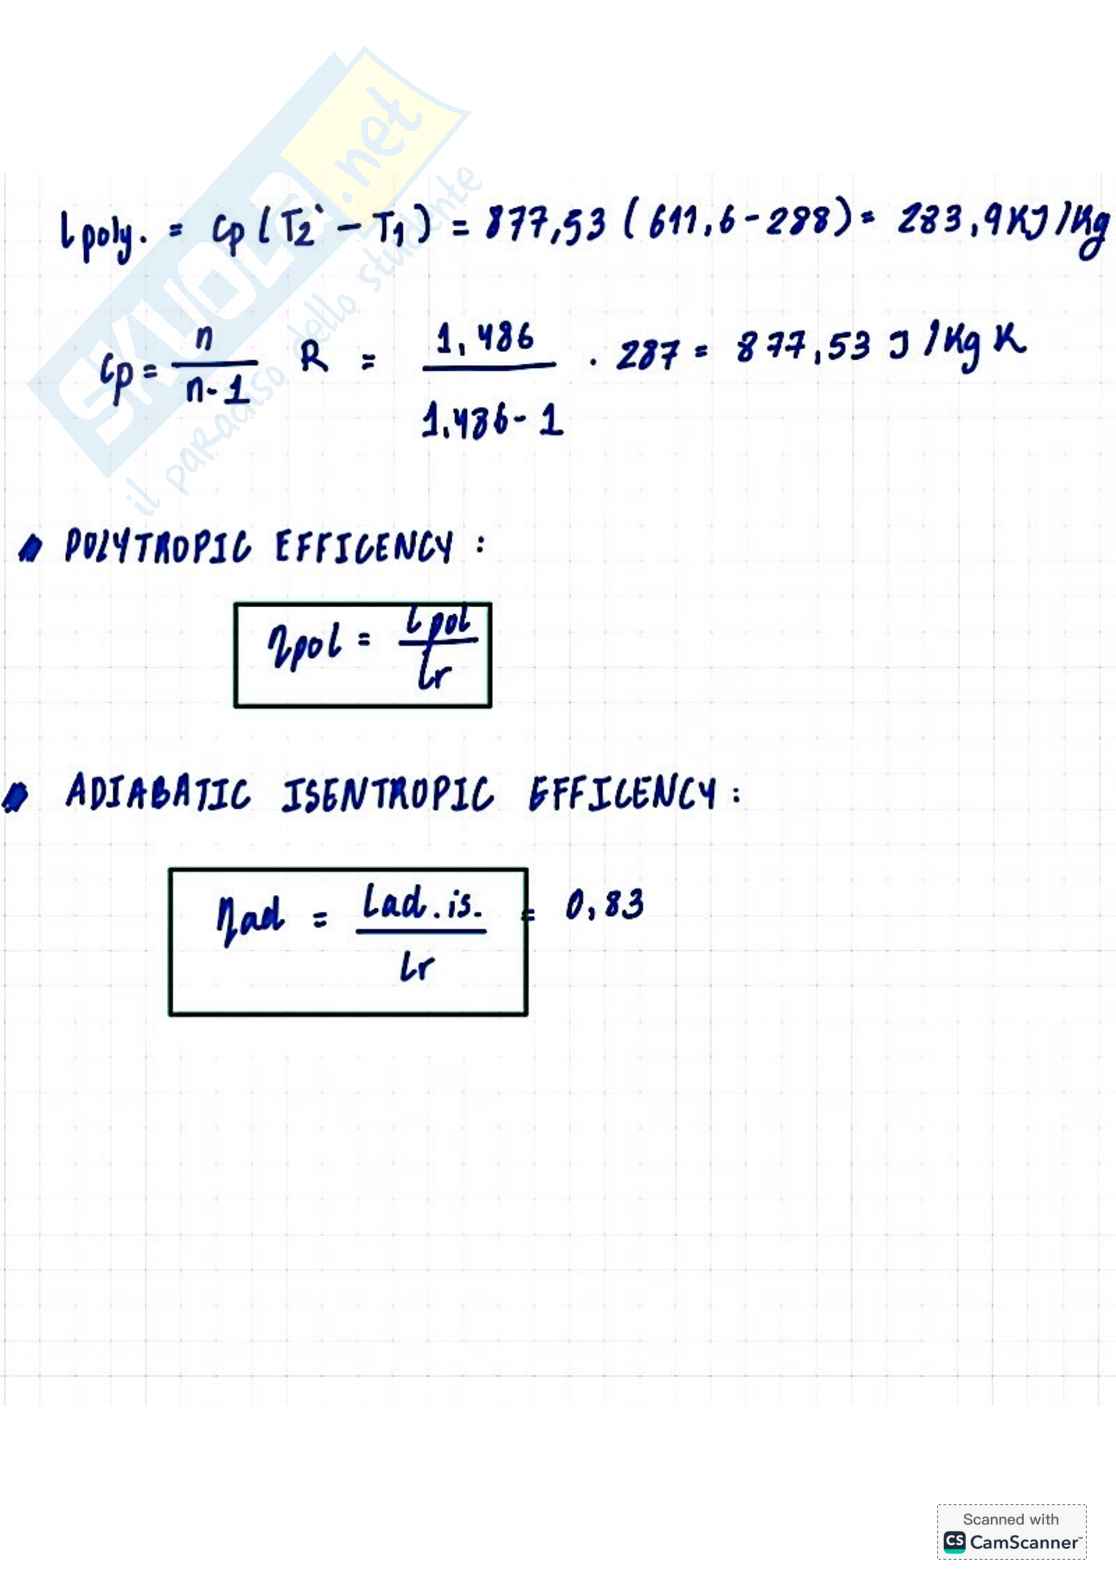 Lpoly. = Cp (T2' - T1) = 877,53 (611,6-288) = 283,9 KJ/Kg
Cp = n/n-1 R = 1,486/1.486-1 · 287 = 877,53 J/Kg K
POLYTROPIC EFFICENCY :
ηpol = Lpol/Lr
ADIABATIC ISENTROPIC EFFICENCY :
ηad = Lad.is./Lr = 0,83
SKUOLA.net
il paradiso dello studente
Scanned with
CS CamScanner